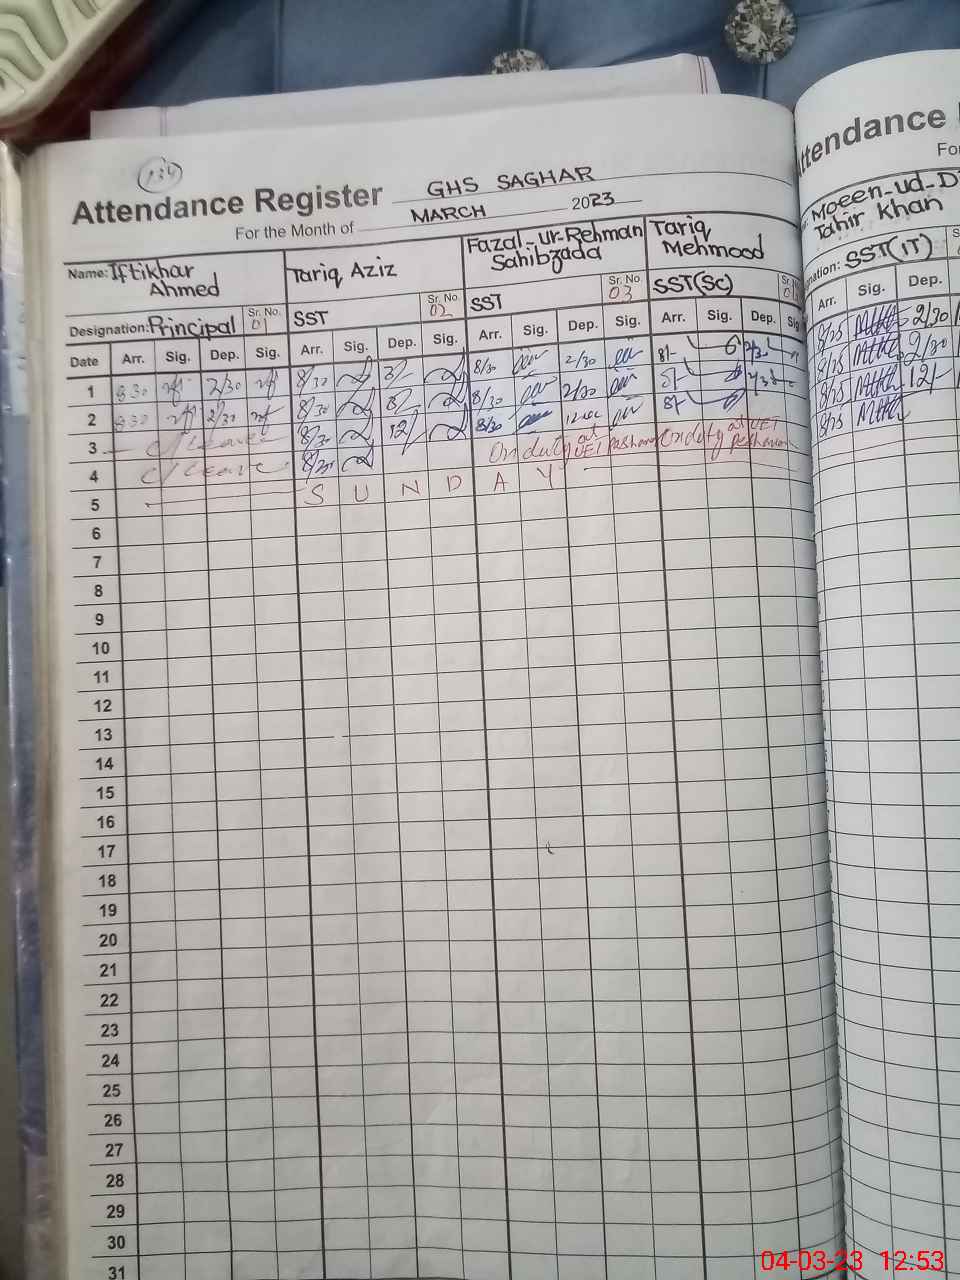 134
Attendance Register GHS SAGHAR
For the Month of MARCH 2023
Name: Iftikhar Ahmed
Tariq Aziz
Fazal-ur-Rehman Sahibzada
Tariq Mehmood
Designation: Principal Sr. No. 01
SST Sr. No. 02
SST Sr. No. 03
SST(SC)
Date Arr. Sig. Dep. Sig. Arr. Sig. Dep. Sig. Arr. Sig. Dep. Sig. Arr. Sig. Dep. Sig
1 830 2/30 8/30 8/30 2/30 8/- 2/30
2 830 2/30 8/30 8/30 2/30 8/-
3 C/Leave 8/30 12/ 8/30 8/-
4 C/Leave 8/30 On duty at UET Peshawar On duty at UET Peshawar
5 S U N D A Y
6
7
8
9
10
11
12
13
14
15
16
17
18
19
20
21
22
23
24
25
26
27
28
29
30
31
ttendance
Fo
Moeen-ud-D
Tahir Khan
nation: SST(IT)
Arr. Sig. Dep.
8/25 2/30
8/25 2/30
8/25 12/-
8/25
04-03-23 12:53